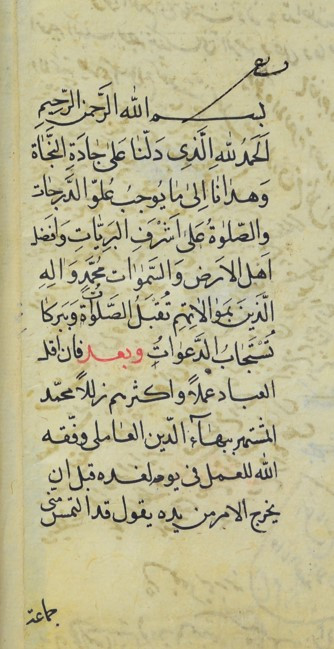 بسم الله الرحمن الرحیم
الحمد لله الذی دلنا علی جادة النجاة
وهدانا الی ما یوجب علو الدرجات
والصلوة علی اشرف البریات وافضل
اهل الارض والسموات محمد واله
الذین بموالاتهم تقبل الصلوات وببرکا
تهم تستجاب الدعوات وبعد فان اقل
العباد عملا واکثرهم زللا محمد
المشتهر ببهاء الدین العاملی وفقه
الله للعمل فی یومه لغده قبل ان
یخرج الامر من یده یقول قد التمس منی
جماعة